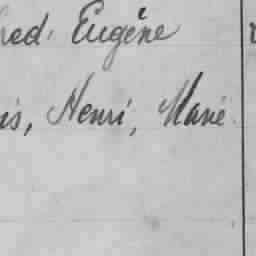 red, Eugène
is, Henri, Marie